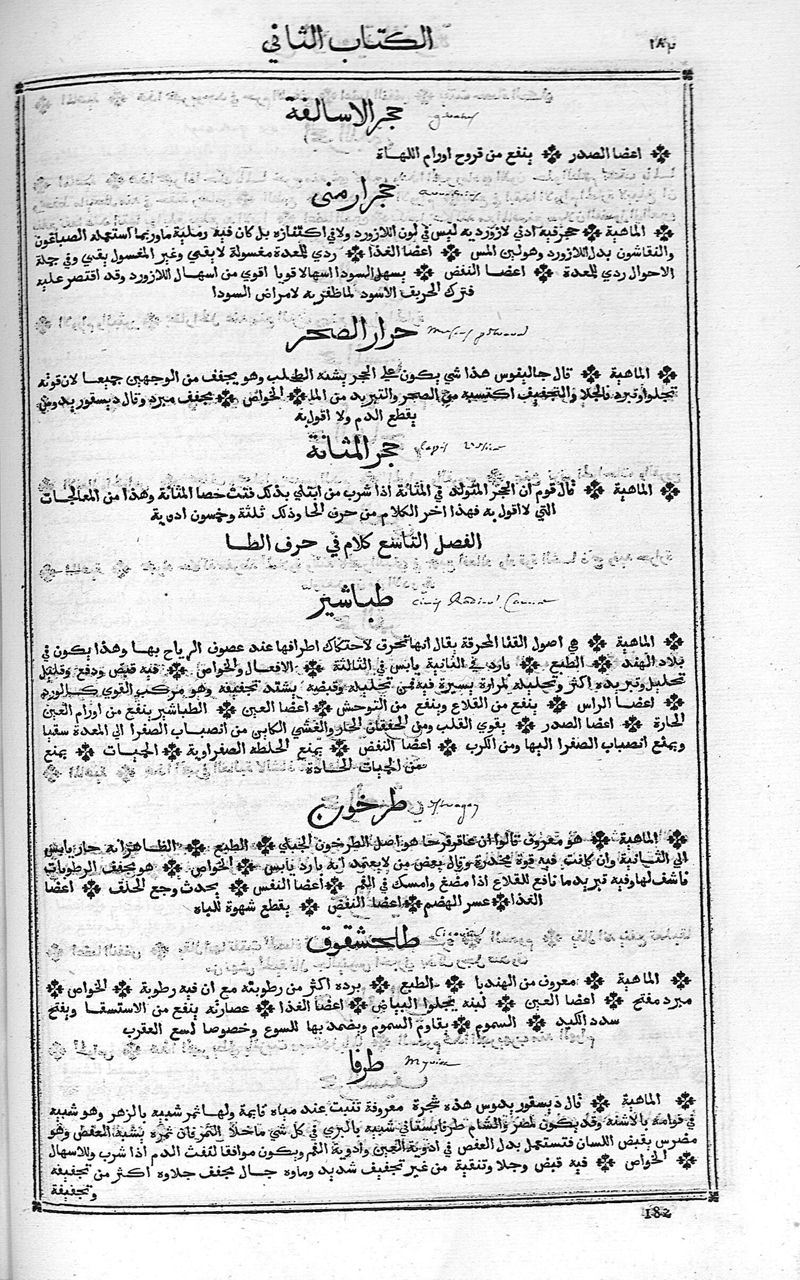 الكتاب الثاني
١٨٢
حجر الاسالفة
اعضا الصدر ❖ ينفع من قروح اورام اللهاة
حجر ارمنى
الماهية ❖ حجر فيه ادني لازوردية ليس في لون اللازورد ولا في اكتنازه بل كان فيه رملية ما وربما استعمله الصباغون
والنقاشون بدل اللازورد وهو لين المس ❖ اعضا الغذا ❖ ردي للمعدة مغسولة لا يقى وغير المغسول يقى وفي جملة
الاحوال ردي للمعدة ❖ اعضا النفض ❖ يسهل السودا اسهالا قويا اقوي من اسهال اللازورد وقد اقتصر عليه
فترك الخربق الاسود لما ظفر به لامراض السودا
حرار الصخر
الماهية ❖ قال جالينوس هذا شي يكون على الحجر يشبه الطحلب وهو يجفف من الوجهين جميعا لان قوته
تجلوا وتبرد فالجلا والتجفيف اكتسبه من الصخر والتبريد من الما ❖ الخواص ❖ يجفف مبرد وقال ديسقوريدوس
يقطع الدم ولا اقول به
حجر المثانة
الماهية ❖ قال قوم ان الحجر المتولد في المثانة اذا شرب من ابتلي بذلك فتت حصا المثانة وهذا من المعالجات
التي لا اقول به فهذا اخر الكلام من حرف الحا وذلك ثلثة وخمسون ادوية
الفصل التاسع كلام في حرف الطا
طباشير
الماهية ❖ هي اصول القنا المحرقة يقال انها تحرق لاحتكاك اطرافها عند عصوف الرياح بها وهذا يكون في
بلاد الهند ❖ الطبع ❖ بارد في الثانية يابس في الثالثة ❖ الافعال والخواص ❖ فيه قبض ودفع وقليل
تحليل وتبريده اكثر وتحليله لمرارة يسيرة فيه فمن تحليله وقبضه يشتد تجفيفه وهو مركب القوي كالورد
❖ اعضا الراس ❖ ينفع من القلاع وينفع من التوحش ❖ اعضا العين ❖ الطباشير ينفع من اورام العين
الحارة ❖ اعضا الصدر ❖ يقوي القلب ومن الخفقان الحار والغشي الكاين من انصباب الصفرا الي المعدة سقيا
ويمنع انصباب الصفرا اليها ومن الكرب ❖ اعضا النفض ❖ يمنع الخلطة الصفراوية ❖ الحميات ❖ يمنع
من الحميات الحادة
طرخون
الماهية ❖ هو معروف قالوا ان عاقرقرحا هو اصل الطرخون الجبلي ❖ الطبع ❖ الظاهر انه حار يابس
الي الثانية وان كانت فيه قوة مخدرة وقال بعض من لا يعتمد انه بارد يابس ❖ الخواص ❖ هو يجفف الرطوبات
ناشف لها وفيه تبريد ما نافع للقلاع اذا مضغ وامسك في الفم ❖ اعضا النفس ❖ يحدث وجع الحلق ❖ اعضا
الغذا ❖ عسر الهضم ❖ اعضا النفض ❖ يقطع شهوة الباه
طلحشقوق
الماهية ❖ معروف من الهندبا ❖ الطبع ❖ برده اكثر من رطوبته مع ان فيه رطوبة ❖ الخواص ❖
مبرد مفتح ❖ اعضا العين ❖ لبنه يجلوا البياض ❖ اعضا الغذا ❖ عصارته ينفع من الاستسقا ويفتح
سدد الكبد ❖ السموم ❖ يقاوم السموم ويضمد بها للسوع وخصوصا لسع العقرب
طرفا
الماهية ❖ قال ديسقوريدوس هذه شجرة معروفة تنبت عند مياه قايمة ولها ثمر شبيه بالزهر وهو شبيه
في قوامه بالاشنه وقد يكون بمصر والشام طرفا بستاني شبيه بالبري في كل شي ما خلا الثمر فان ثمره يشبه العفص وهو
مضرس يقبض اللسان فتستعمل بدل العفص في ادوية العين وادوية الفم ويكون موافقا لنفث الدم اذا شرب وللاسهال
❖ الخواص ❖ فيه قبض وجلا وتنقية من غير تجفيف شديد وماوه جال مجفف جلاوه اكثر من تجفيفه
وتجفيفة
182